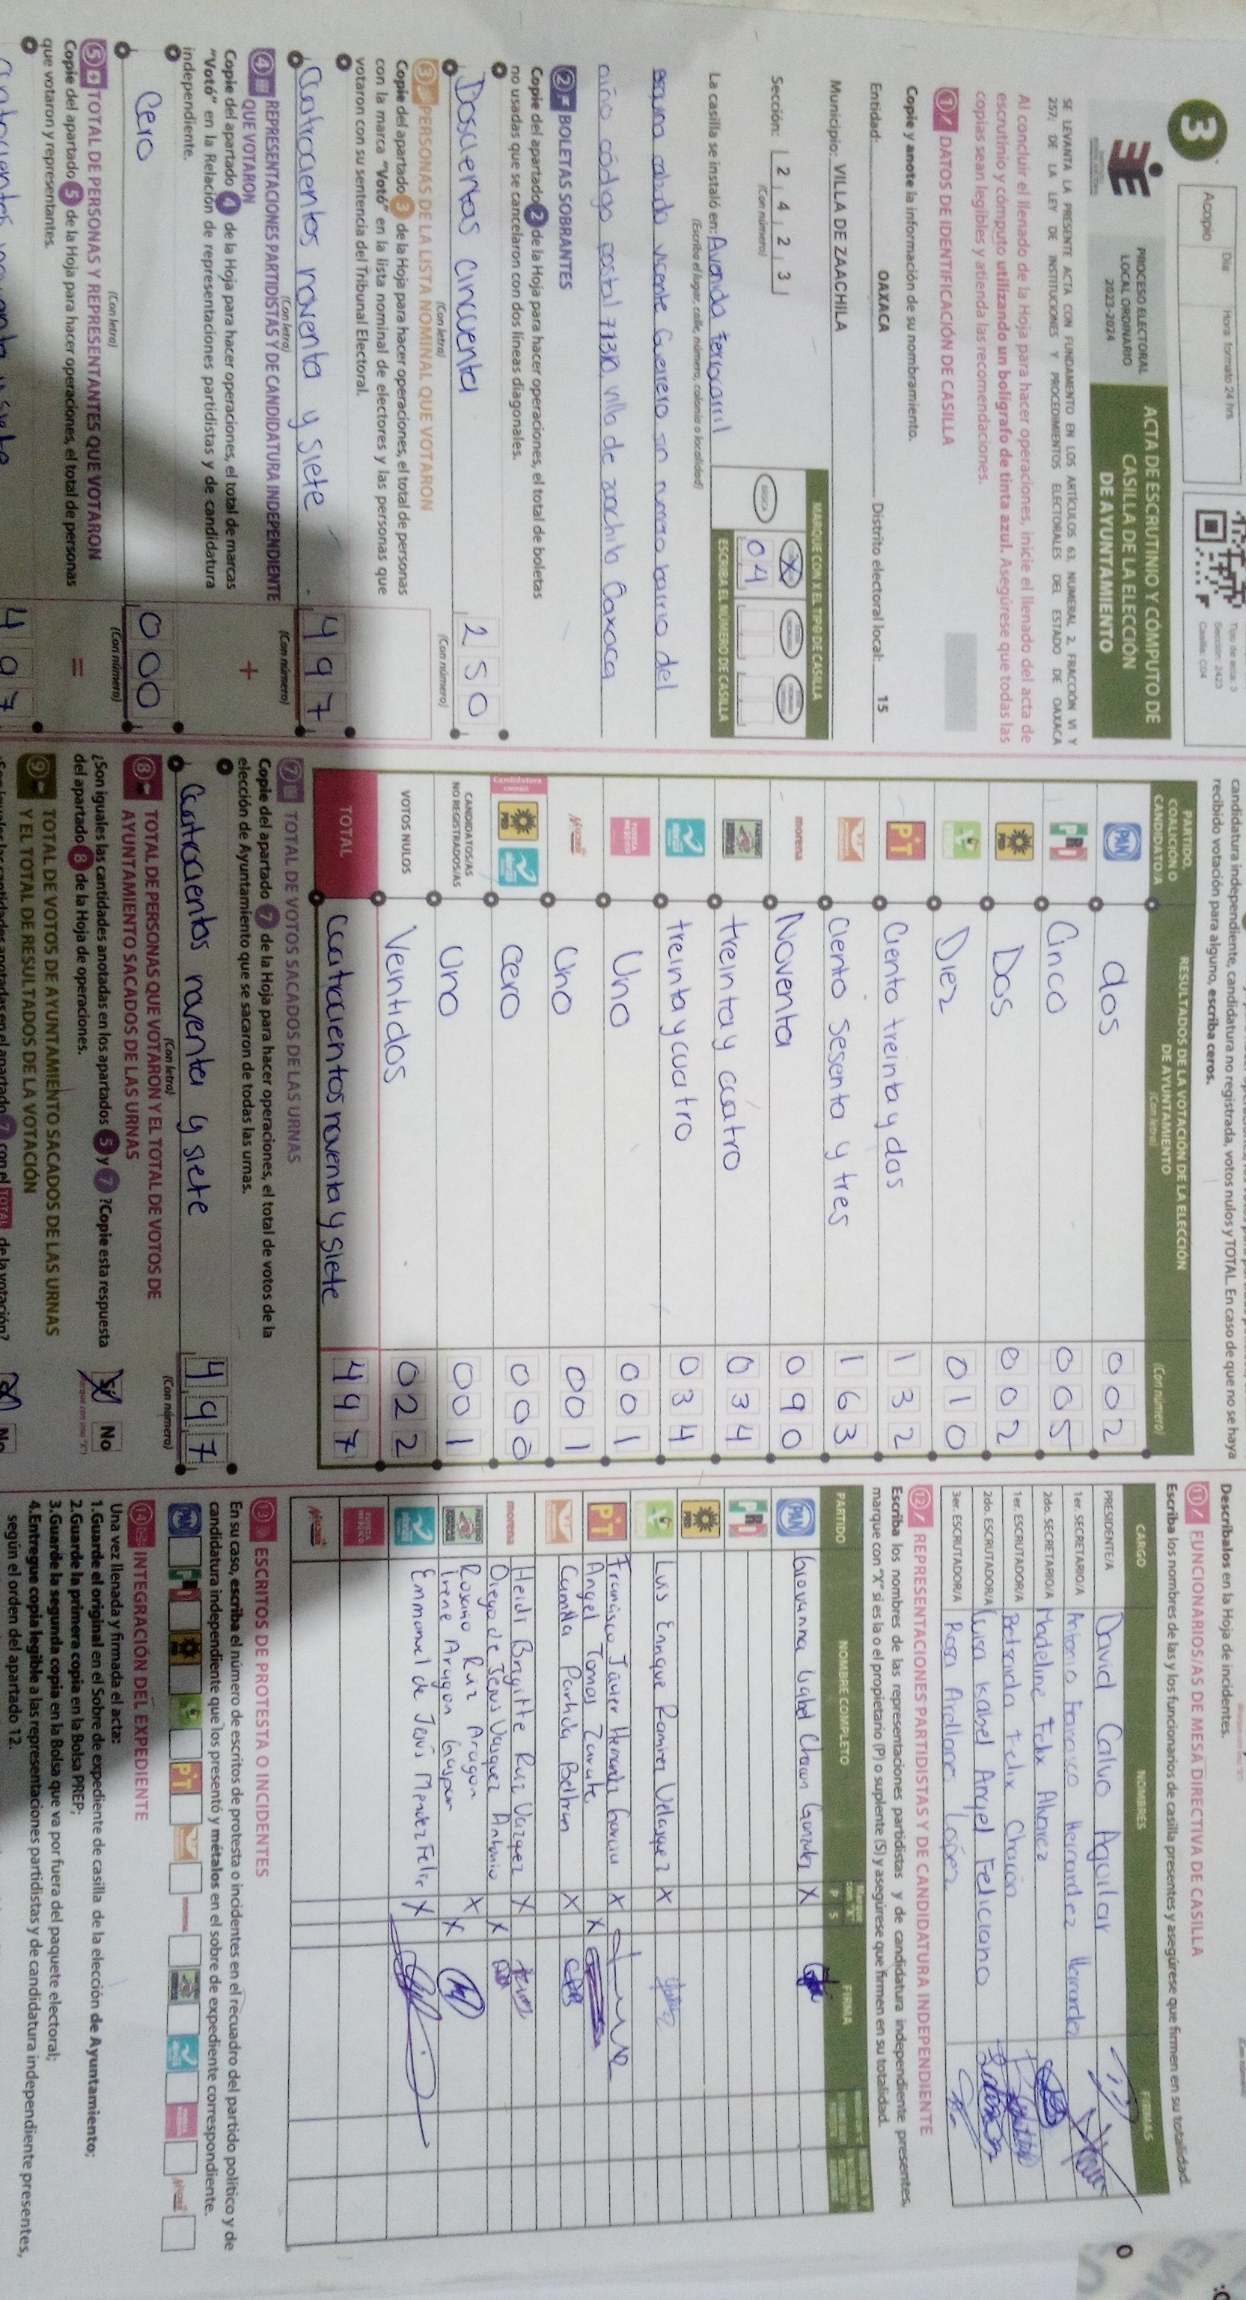 3
Día Hora: formato 24 hrs.
Acopio
Tipo de acta: 3
Sección: 2423
Casilla: C04
PROCESO ELECTORAL
LOCAL ORDINARIO
2023-2024
ACTA DE ESCRUTINIO Y CÓMPUTO DE
CASILLA DE LA ELECCIÓN
DE AYUNTAMIENTO
SE LEVANTA LA PRESENTE ACTA CON FUNDAMENTO EN LOS ARTÍCULOS 63, NUMERAL 2, FRACCIÓN VI Y
257, DE LA LEY DE INSTITUCIONES Y PROCEDIMIENTOS ELECTORALES DEL ESTADO DE OAXACA
Al concluir el llenado de la Hoja para hacer operaciones, inicie el llenado del acta de
escrutinio y cómputo utilizando un bolígrafo de tinta azul. Asegúrese que todas las
copias sean legibles y atienda las recomendaciones.
1 DATOS DE IDENTIFICACIÓN DE CASILLA
Copie y anote la información de su nombramiento.
Entidad: OAXACA Distrito electoral local: 15
Municipio: VILLA DE ZAACHILA
Sección: 2 4 2 3
(Con número)
MARQUE CON X EL TIPO DE CASILLA
X
04
ESCRIBA EL NÚMERO DE CASILLA
La casilla se instaló en: Avenida ferrocarril
(Escriba el lugar, calle, número, colonia o localidad)
esquina abado vicente Guerrero sin numero barrio del
niño código postal 71310, villa de zaachila Oaxaca
2 BOLETAS SOBRANTES
Copie del apartado 2 de la Hoja para hacer operaciones, el total de boletas
no usadas que se cancelaron con dos líneas diagonales.
Doscientas cincuenta 250
(Con letra) (Con número)
3 PERSONAS DE LA LISTA NOMINAL QUE VOTARON
Copie del apartado 3 de la Hoja para hacer operaciones, el total de personas
con la marca "Votó" en la lista nominal de electores y las personas que
votaron con su sentencia del Tribunal Electoral.
Cuatrocientos noventa y siete 497
(Con letra) (Con número)
4 REPRESENTACIONES PARTIDISTAS Y DE CANDIDATURA INDEPENDIENTE
QUE VOTARON
Copie del apartado 4 de la Hoja para hacer operaciones, el total de marcas
"Votó" en la Relación de representaciones partidistas y de candidatura
independiente.
+
Cero 000
(Con letra) (Con número)
5 TOTAL DE PERSONAS Y REPRESENTANTES QUE VOTARON
Copie del apartado 5 de la Hoja para hacer operaciones, el total de personas
que votaron y representantes.
=
497
candidatura independiente, candidatura no registrada, votos nulos y TOTAL. En caso de que no se haya
recibido votación para alguno, escriba ceros.
PARTIDO,
COALICIÓN O
CANDIDATO/A
RESULTADOS DE LA VOTACIÓN DE LA ELECCIÓN
DE AYUNTAMIENTO
(Con letra)
(Con número)
PAN dos 002
PRI Cinco 005
PRD Dos 002
Diez 010
PT Ciento treinta y dos 132
Ciento sesenta y tres 163
morena Noventa 090
treinta y cuatro 034
treinta y cuatro 034
FUERZA MÉXICO Uno 001
Uno 001
Candidatura común PRD Cero 000
CANDIDATOS/AS
NO REGISTRADOS/AS Uno 001
VOTOS NULOS Veintidos 022
TOTAL Cuatrocientos noventa y siete 497
7 TOTAL DE VOTOS SACADOS DE LAS URNAS
Copie del apartado 7 de la Hoja para hacer operaciones, el total de votos de la
elección de Ayuntamiento que se sacaron de todas las urnas.
Cuatrocientos noventa y siete 497
(Con letra) (Con número)
8 TOTAL DE PERSONAS QUE VOTARON Y EL TOTAL DE VOTOS DE
AYUNTAMIENTO SACADOS DE LAS URNAS
¿Son iguales las cantidades anotadas en los apartados 5 y 7? Copie esta respuesta
del apartado 8 de la Hoja de operaciones.
Sí No
9 TOTAL DE VOTOS DE AYUNTAMIENTO SACADOS DE LAS URNAS
Y EL TOTAL DE RESULTADOS DE LA VOTACIÓN
¿Son iguales las cantidades anotadas en el apartado 7 con el TOTAL de la votación?
No
Descríbalos en la Hoja de incidentes.
11 FUNCIONARIOS/AS DE MESA DIRECTIVA DE CASILLA
Escriba los nombres de las y los funcionarios de casilla presentes y asegúrese que firmen en su totalidad.
CARGO NOMBRES FIRMAS
PRESIDENTE/A David Calvo Aguilar
1er. SECRETARIO/A Antonio Hernandez
2do. SECRETARIO/A Madeline Felix Alvarez
1er. ESCRUTADOR/A Felix Chacón
2do. ESCRUTADOR/A Isabel Angel Feliciano
3er. ESCRUTADOR/A Rosa Arellanes López
12 REPRESENTACIONES PARTIDISTAS Y DE CANDIDATURA INDEPENDIENTE
Escriba los nombres de las representaciones partidistas y de candidatura independiente presentes,
marque con "X" si es la o el propietario (P) o suplente (S) y asegúrese que firmen en su totalidad.
PARTIDO NOMBRE COMPLETO P S FIRMA
PAN Giovanna Isabel Chacon Gonzalez X
PRI
PRD
Luis Enrique Ramirez Velasquez X
PT Francisco Javier Hernandez Garcia X
Angel Tomas Zarate X
Camila Partida Beltran X
morena Heidi Brigitte Ruiz Vazquez X
Diego de Jesus Vasquez Antonio X
Rosario Ruiz Aragon X
Irene Aragon Gaspar X
Emmanuel de Jesús Mendez Felix X
FUERZA MÉXICO
13 ESCRITOS DE PROTESTA O INCIDENTES
En su caso, escriba el número de escritos de protesta o incidentes en el recuadro del partido político y de
candidatura independiente que los presentó y métalos en el sobre de expediente correspondiente.
PAN PRI PRD PT morena
14 INTEGRACIÓN DEL EXPEDIENTE
Una vez llenada y firmada el acta:
1.Guarde el original en el Sobre de expediente de casilla de la elección de Ayuntamiento;
2.Guarde la primera copia en la Bolsa PREP;
3.Guarde la segunda copia en la Bolsa que va por fuera del paquete electoral;
4.Entregue copia legible a las representaciones partidistas y de candidatura independiente presentes,
según el orden del apartado 12.